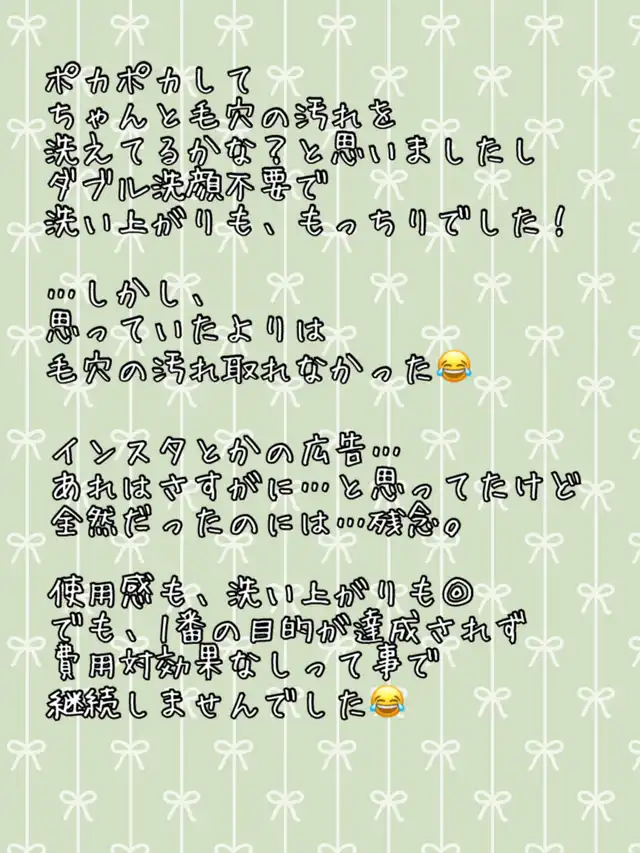 ポカポカして
ちゃんと毛穴の汚れを
洗えてるかな？と思いましたし
ダブル洗顔不要で
洗い上がりも、もっちりでした！
…しかし、
思っていたよりは
毛穴の汚れ取れなかった😂
インスタとかの広告…
あれはさすがに…と思ってたけど
全然だったのには…残念。
使用感も、洗い上がりも◎
でも、1番の目的が達成されず
費用対効果なしって事で
継続しませんでした😂